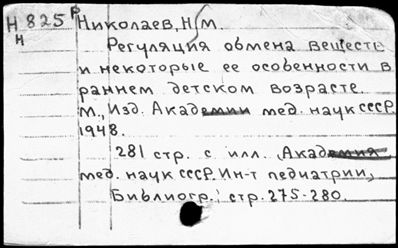 Н 825 Р Николаев, Н.М.
н
Регуляция обмена веществ
и некоторые ее особенности в
раннем детском возрасте.
М., Изд. Академии мед. наук СССР.
1948.
281 стр. с илл. Академия
мед. наук СССР. Ин-т педиатрии,
Библиогр.: стр. 275-280.